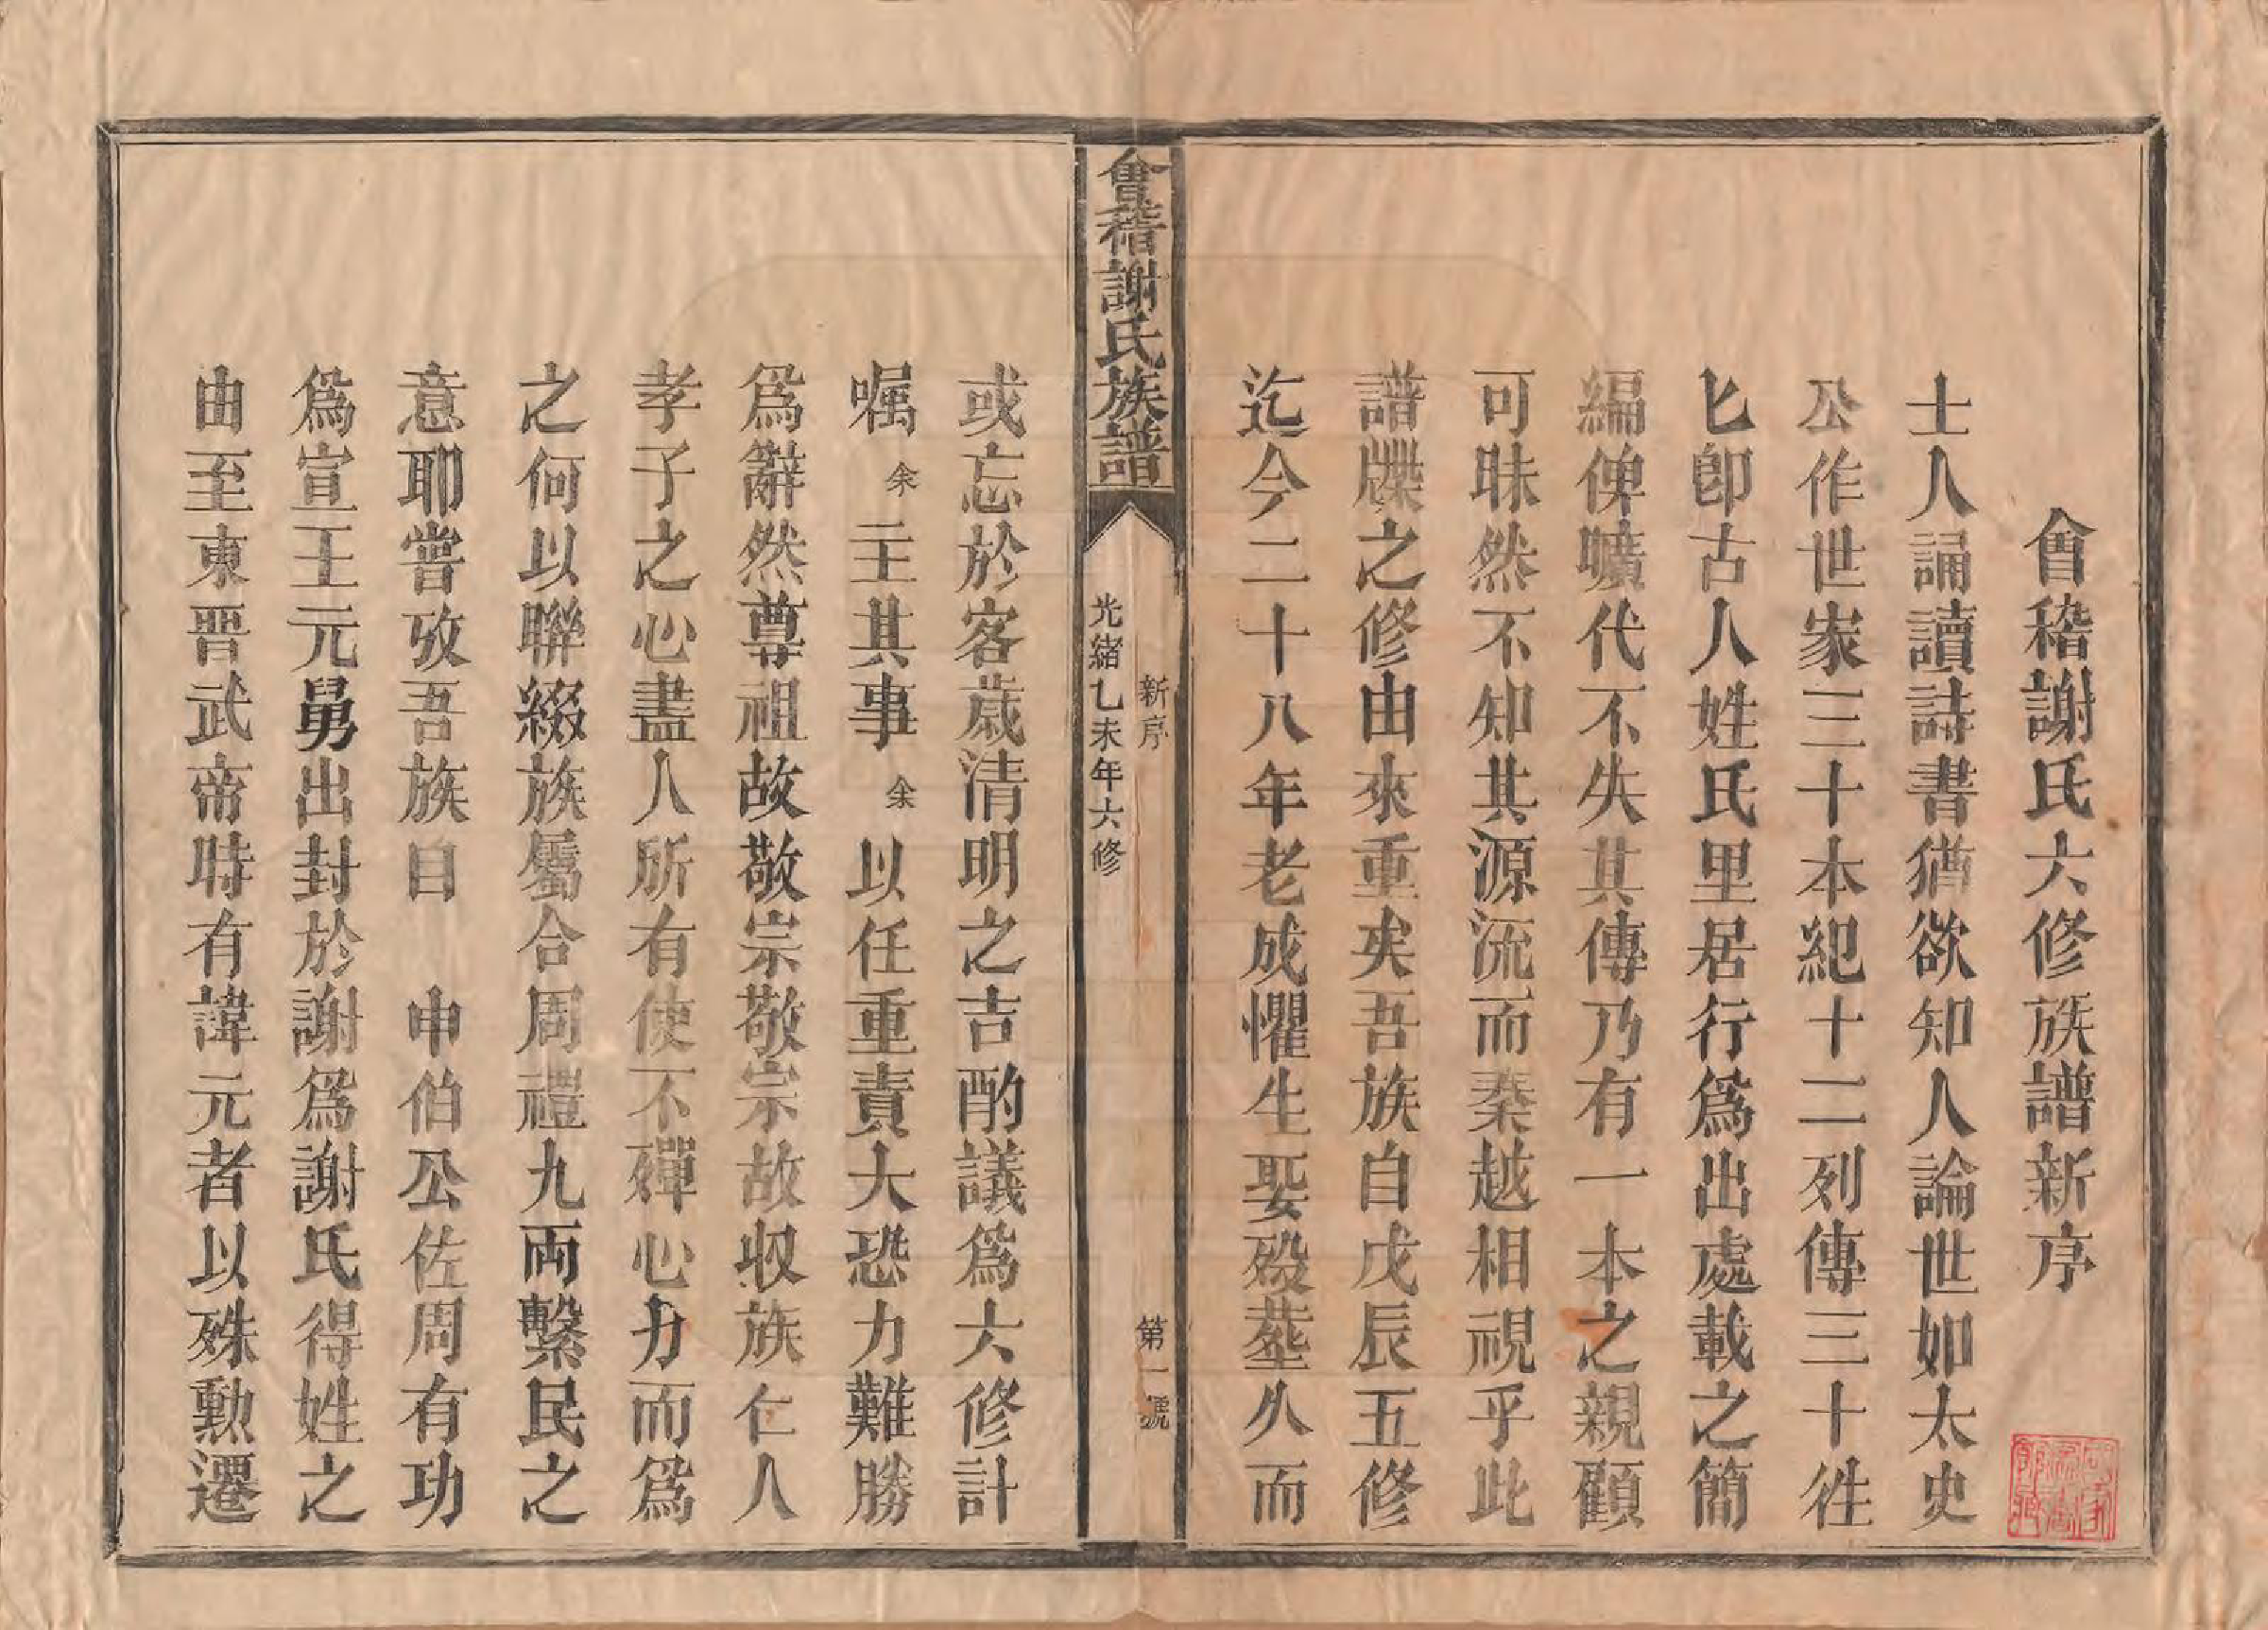 會稽謝氏六修族譜新序
士人誦讀詩書猶欲知人論世如太史
公作世家三十本紀十二列傳三十徃
匕卽古人姓氏里居行爲出處載之簡
編俾曠代不失其傳乃有一本之親顧
可昧然不知其源流而秦越相視乎此
譜牒之修由來重矣吾族自戊辰五修
迄今二十八年老成懼生娶殁塟久而
會稽謝氏族譜
新序
第一號
光緒乙未年六修
或忘於客歲清明之吉酌議爲六修計
嘱余主其事余以任重責大恐力難勝
爲辭然尊祖故敬宗敬宗故収族仁人
孝子之心盡人所有使不殫心力而爲
之何以聯綴族屬合周禮九両繫民之
意耶嘗攷吾族自 申伯公佐周有功
爲宣王元舅出封於謝爲謝氏得姓之
由至東晋武帝時有諱元者以殊勲遷